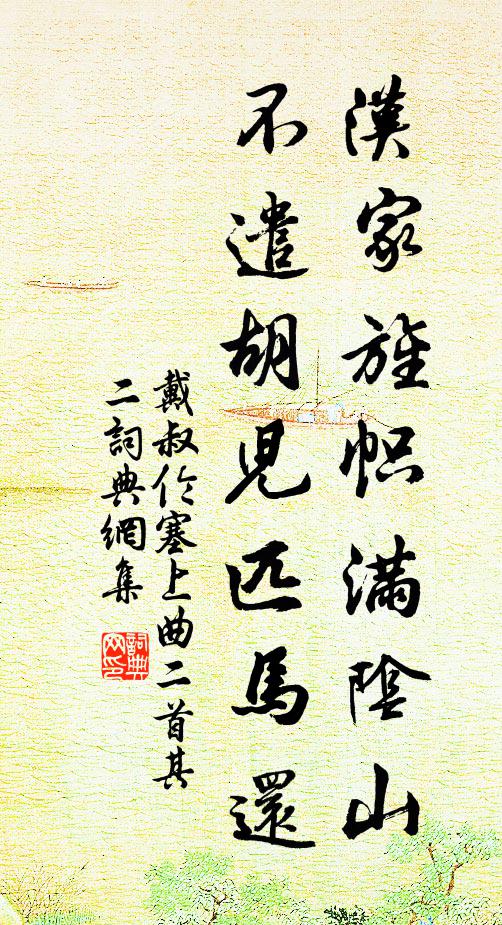 漢家旌帜滿陰山
不遣胡兒匹馬還
戴叔伦塞上曲二首其
二詞典網集
詞典网印